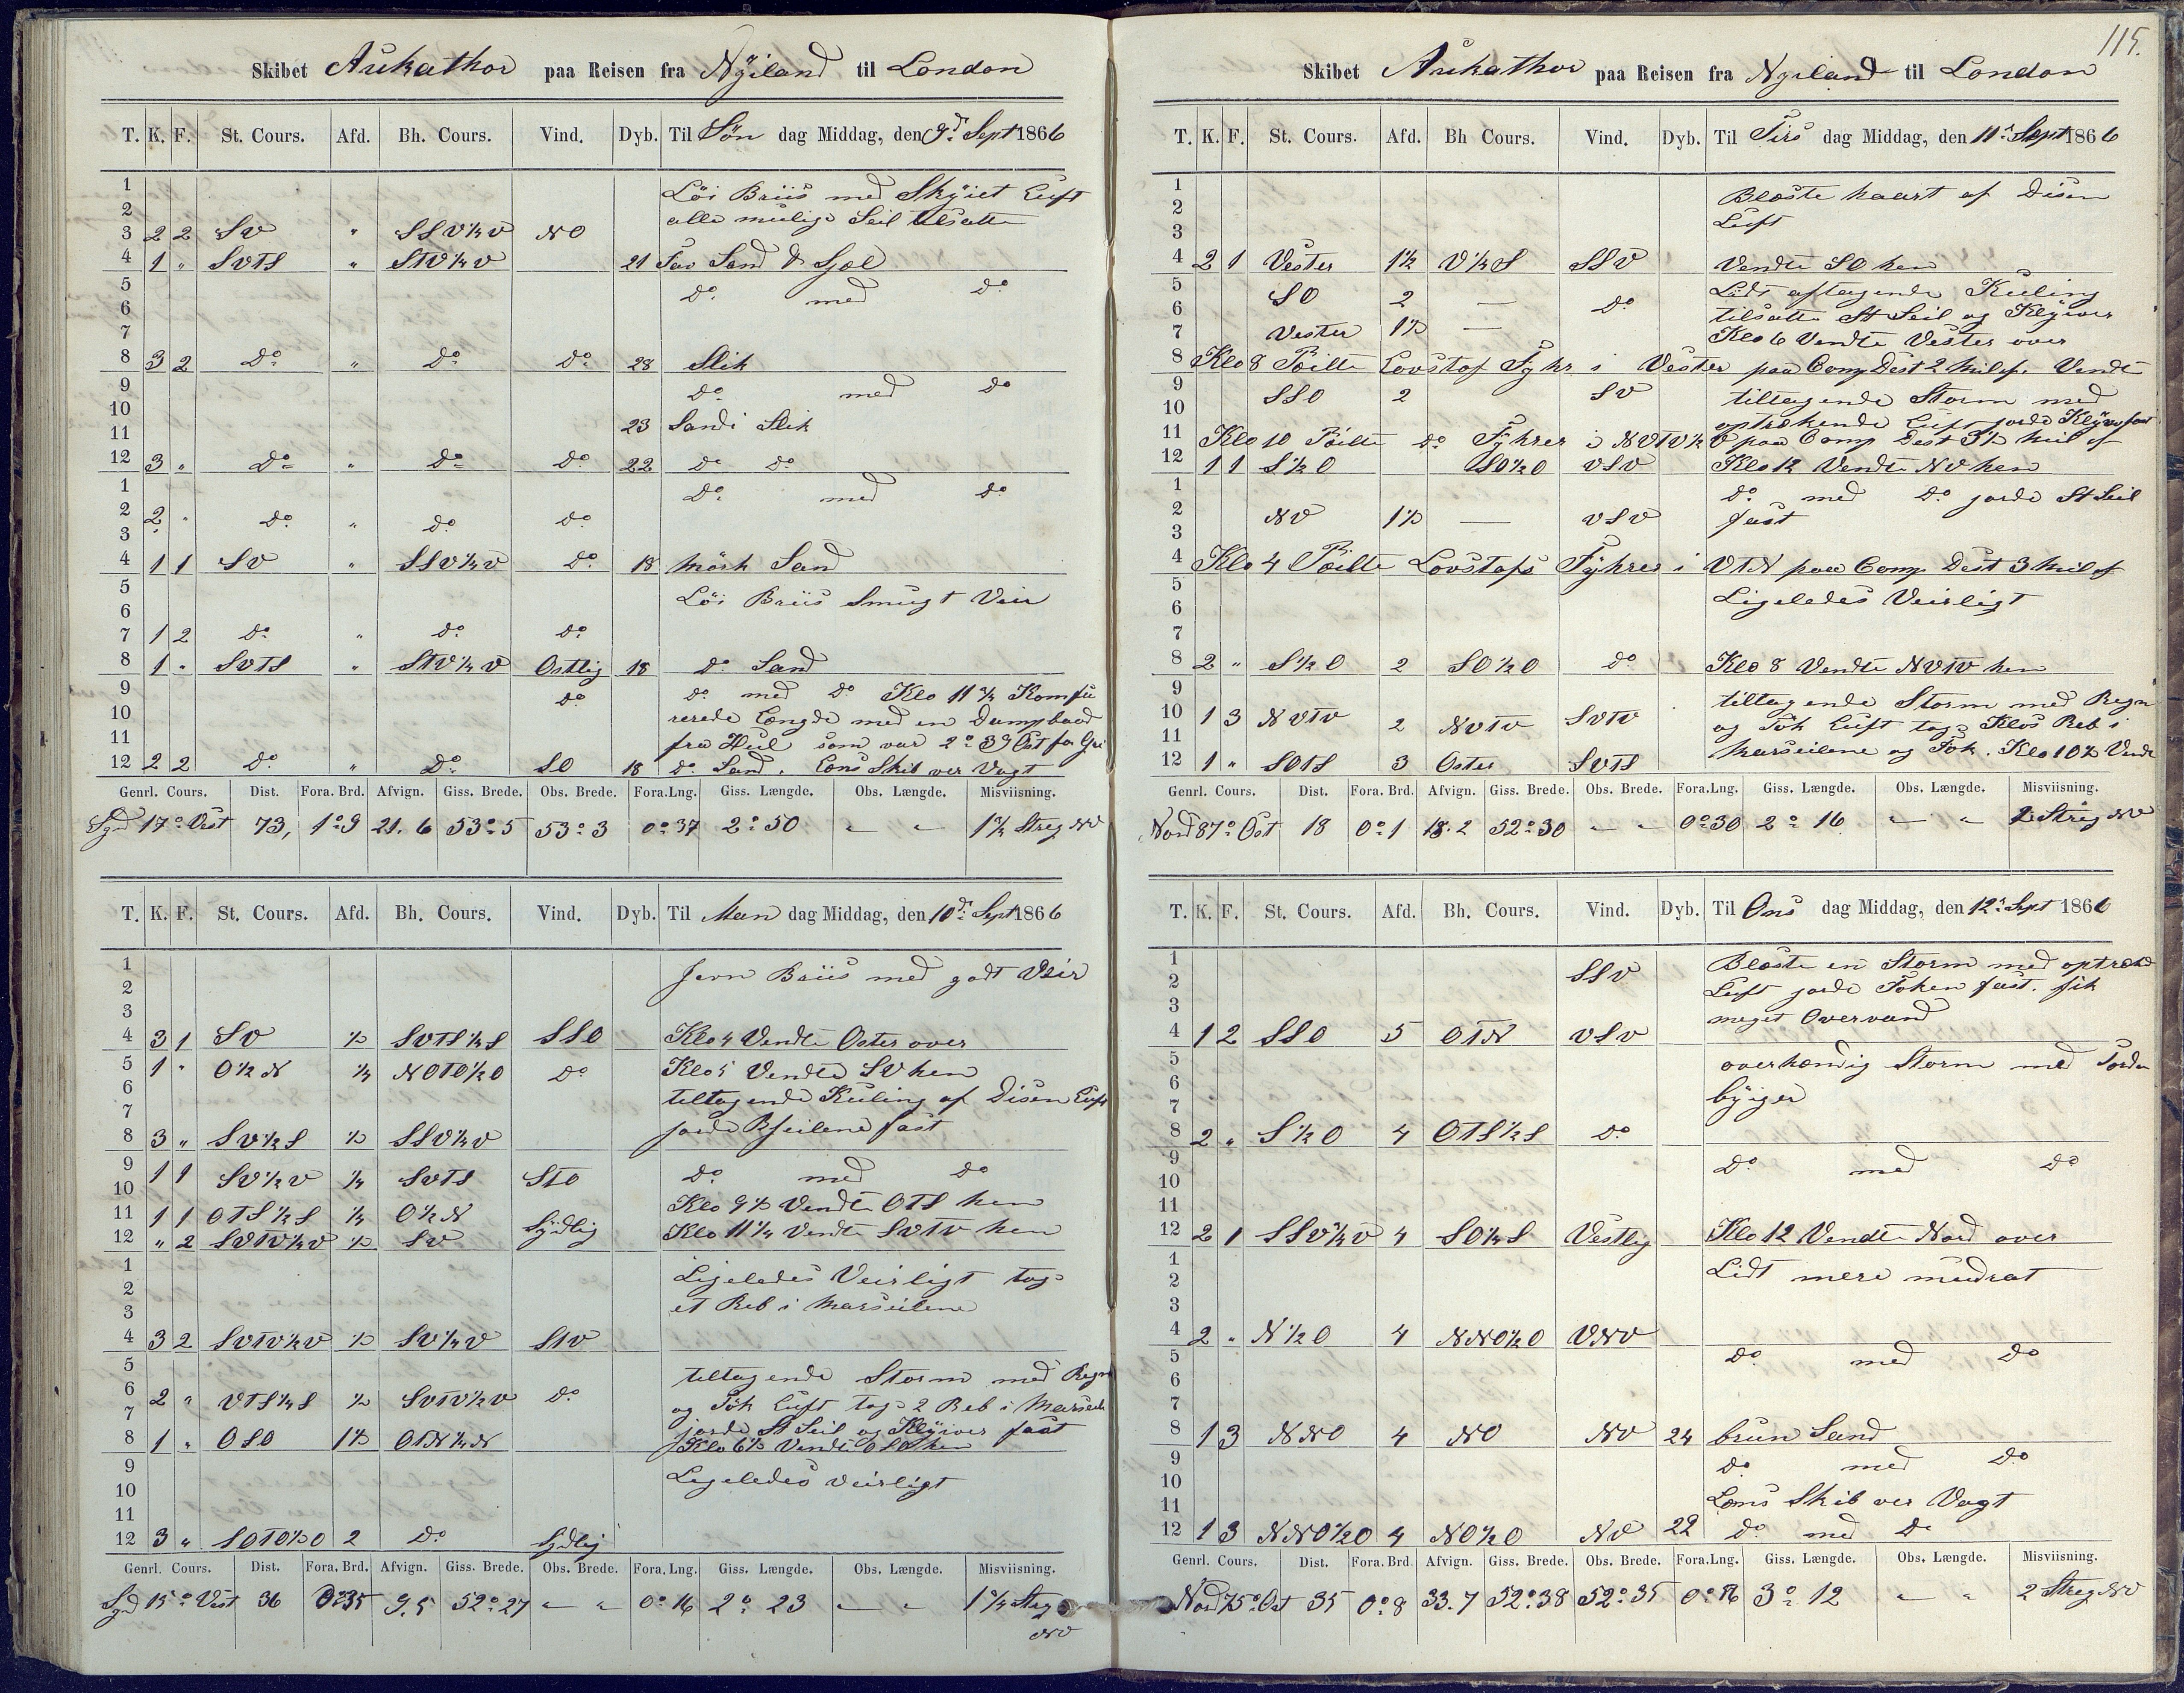 Skibet Aukathor paa Reisen fra Nyiland til London
T. K. F. St. Cours. Afd. Bh. Cours. Vind. Dyb. Til Søn dag Middag, den 9d Sept 1866
1 Løi Briis med Skyiet Luft
2 alle mulige Seil tilsatte
3 2 2 SV " SSV¼V NO
4 1 " SVTS " STV¼V 21 Sand &
5 do med do
6
7
8 3 2 do " do do 28 Slik
9 do med do
10
11 23 Sandi Slik
12 3 " do " do do 22 do do
1 do med do
2 2 " do " do do
3
4 1 1 SV " SSV¼V do 18 mørk Sand
5 Løi Briis Smugt Veir
6
7 1 2 do " do do
8 1 " SVTS " STV¼V Ostlig 18 do Sand
9 do do med do Klo 11¾ Komfu
10 rerede Længde med en Dampbaad
11 fra Hul som var 2o 39 Ost for Gri
12 2 2 do " do SO 18 do Sand. Læns Skib ver Vagt
Genrl. Cours. Dist. Fora. Brd. Afvign. Giss. Brede. Obs. Brede. Fora. Lng. Giss. Længde. Obs. Længde. Misviisning.
Syd 17o Vest 73, 1o9 21.6 53o5 53o3 0o37 2o50 " " 1¾ Streg NV
T. K. F. St. Cours. Afd. Bh. Cours. Vind. Dyb. Til Man dag Middag, den 10d Sept 1866
1 Jevn Briis med godt Veir
2
3
4 3 1 SV ½ SVTS¼S SSO Klo 4 Vendte Oster over
5 1 " O½N ¼ NOTO½O do Klo 5 Vendte SV hen
6 tiltagende Kuling af Disen Luft
7 jorde Bseilene fast
8 3 " SV½S ½ SSV½V
9 1 1 SV½V ¼ SVTS STO do med do
10 Klo 9½ Vendte OTS hen
11 1 1 OTS½S ¼ O½N Sydlig Klo 11¼ Vendte SVTV hen
12 " 2 SVTV¼V ½ SV
1 Ligeledes Veirligt tog
2 et Reb i Marseilene
3
4 3 2 SVTV½V ½ SV¼V STV
5 tiltagende Storm med Regn
6 2 " VTS¼S ½ SVTV½V do og Tök Luft tog 2 Reb i Marseile
7 jorde St Seil og Klyiver fast
8 1 " OSO 1½ OTN¼N Klo 6½ Vendte OSO hen
9 Ligeledes veirligt
10
11
12 3 " SOTO½O 2 do Sydlig
Genrl. Cours. Dist. Fora. Brd. Afvign. Giss. Brede. Obs. Brede. Fora. Lng. Giss. Længde. Obs. Længde. Misviisning.
Syd 15o Vest 36 0o35 9.5 52o27 " " 0o16 2o23 " " 1¾ Streg
NV
115.
Skibet Aukathor paa Reisen fra Nyiland til London
T. K. F. St. Cours. Afd. Bh Cours. Vind. Dyb. Til Tirs dag Middag, den 11d Sept 1866
1 Blæste haart af Disen
2 Luft
3
4 2 1 Vester 1½ V¼S SSV Vendte SO hen
5 SO 2 — do Lidt aftagende Kuling
6 tilsatte St Seil og Klyiver
7 Vester 1½ — Klo 6 Vendte Vester over
8 Klo 8 Peilte Lovstof Fyhr i Vester paa Comp Dist 2 Mil af. Vendt
9 SSO 2 SV tiltagende Storm med
10 optrækende Luft jorde Klyiver fast
11 Klo 10 Peilte do Fyhrer i NVTV½V paa Comp Dist 3½ Mil af
12 1 1 S½O SO½O VSV Klo 12 Vendte NV hen
1 do med do jorde St Seil
2 NV 1½ — VSV fast
3
4 Klo 4 Peilte Lovstofs Fyhrer i VTN paa Comp Dist 3 Mil af
5 Ligeledes Veirligt
6
7
8 2 " S½O 2 SO½O do Klo 8 Vendte NVTV hen
9 tiltagende Storm med Regn
10 1 3 NVTV 2 NVTV SVTV og Tök Luft tog Klos Reb i
11 Marseilene og Fok. Klo 10½ Vende
12 1 " SOTS 3 Oster SVTS
Genrl. Cours. Dist. Fora. Brd. Afvign. Giss. Brede. Obs. Brede. Fora. Lng. Giss. Længde. Obs. Længde. Misviisning.
Nord 87o Ost 18 0o1 18.2 52o30 " " 0o30 2o16 " " 2 Streg NV
T. K. F. St. Cours. Afd. Bh. Cours. Vind. Dyb. Til Ons dag Middag, den 12d Sept 1866
1 Blæste en Storm med optræk
2 SSV Luft jorde Foken fast. fik
3 meget Overvand
4 1 2 SSO 5 OTN VSV
5 overhændig Storm med Torden
6 byiger
7
8 2 " S½O 4 OTS½S do
9 do med do
10
11
12 2 1 SSV¼V 4 SO¼S Vestlig Klo 12 Vendte Nord over
1 Lidt mere mudrat
2
3
4 2 " N½O 4 NNO½O VNV
5 do med do
6
7
8 1 3 NNO 4 NO NV 24 brun Sand
9 do med do
10
11 Læns Skib ver Vagt
12 1 3 NNO½O 4 NO½O NV 22 do med do
Genrl. Cours. Dist. Fora. Brd. Afvign. Giss. Brede. Obs. Brede. Fora. Lng. Giss. Længde. Obs. Længde. Misviisning.
Nord 75o Ost 35 0o8 33.7 52o38 52o35 0o56 3o12 " " 2 Streg NV